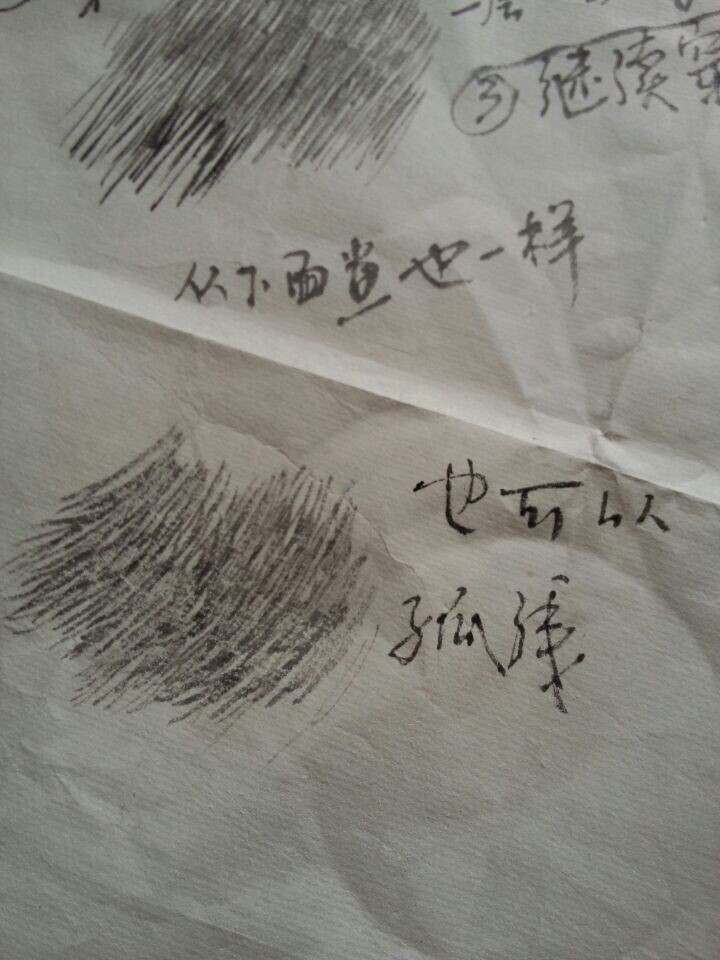 一层
③继续
从下面也一样
也可以
孤线